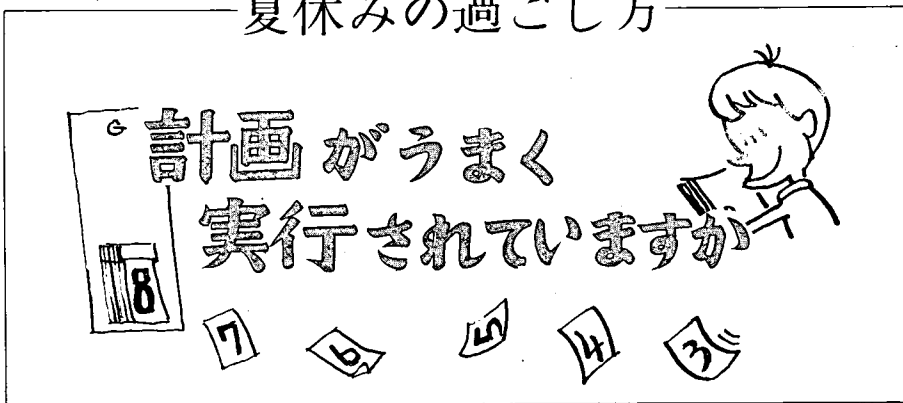 夏休みの過ごし方
計画がうまく
実行されていますか
8
7 6 5 4 3